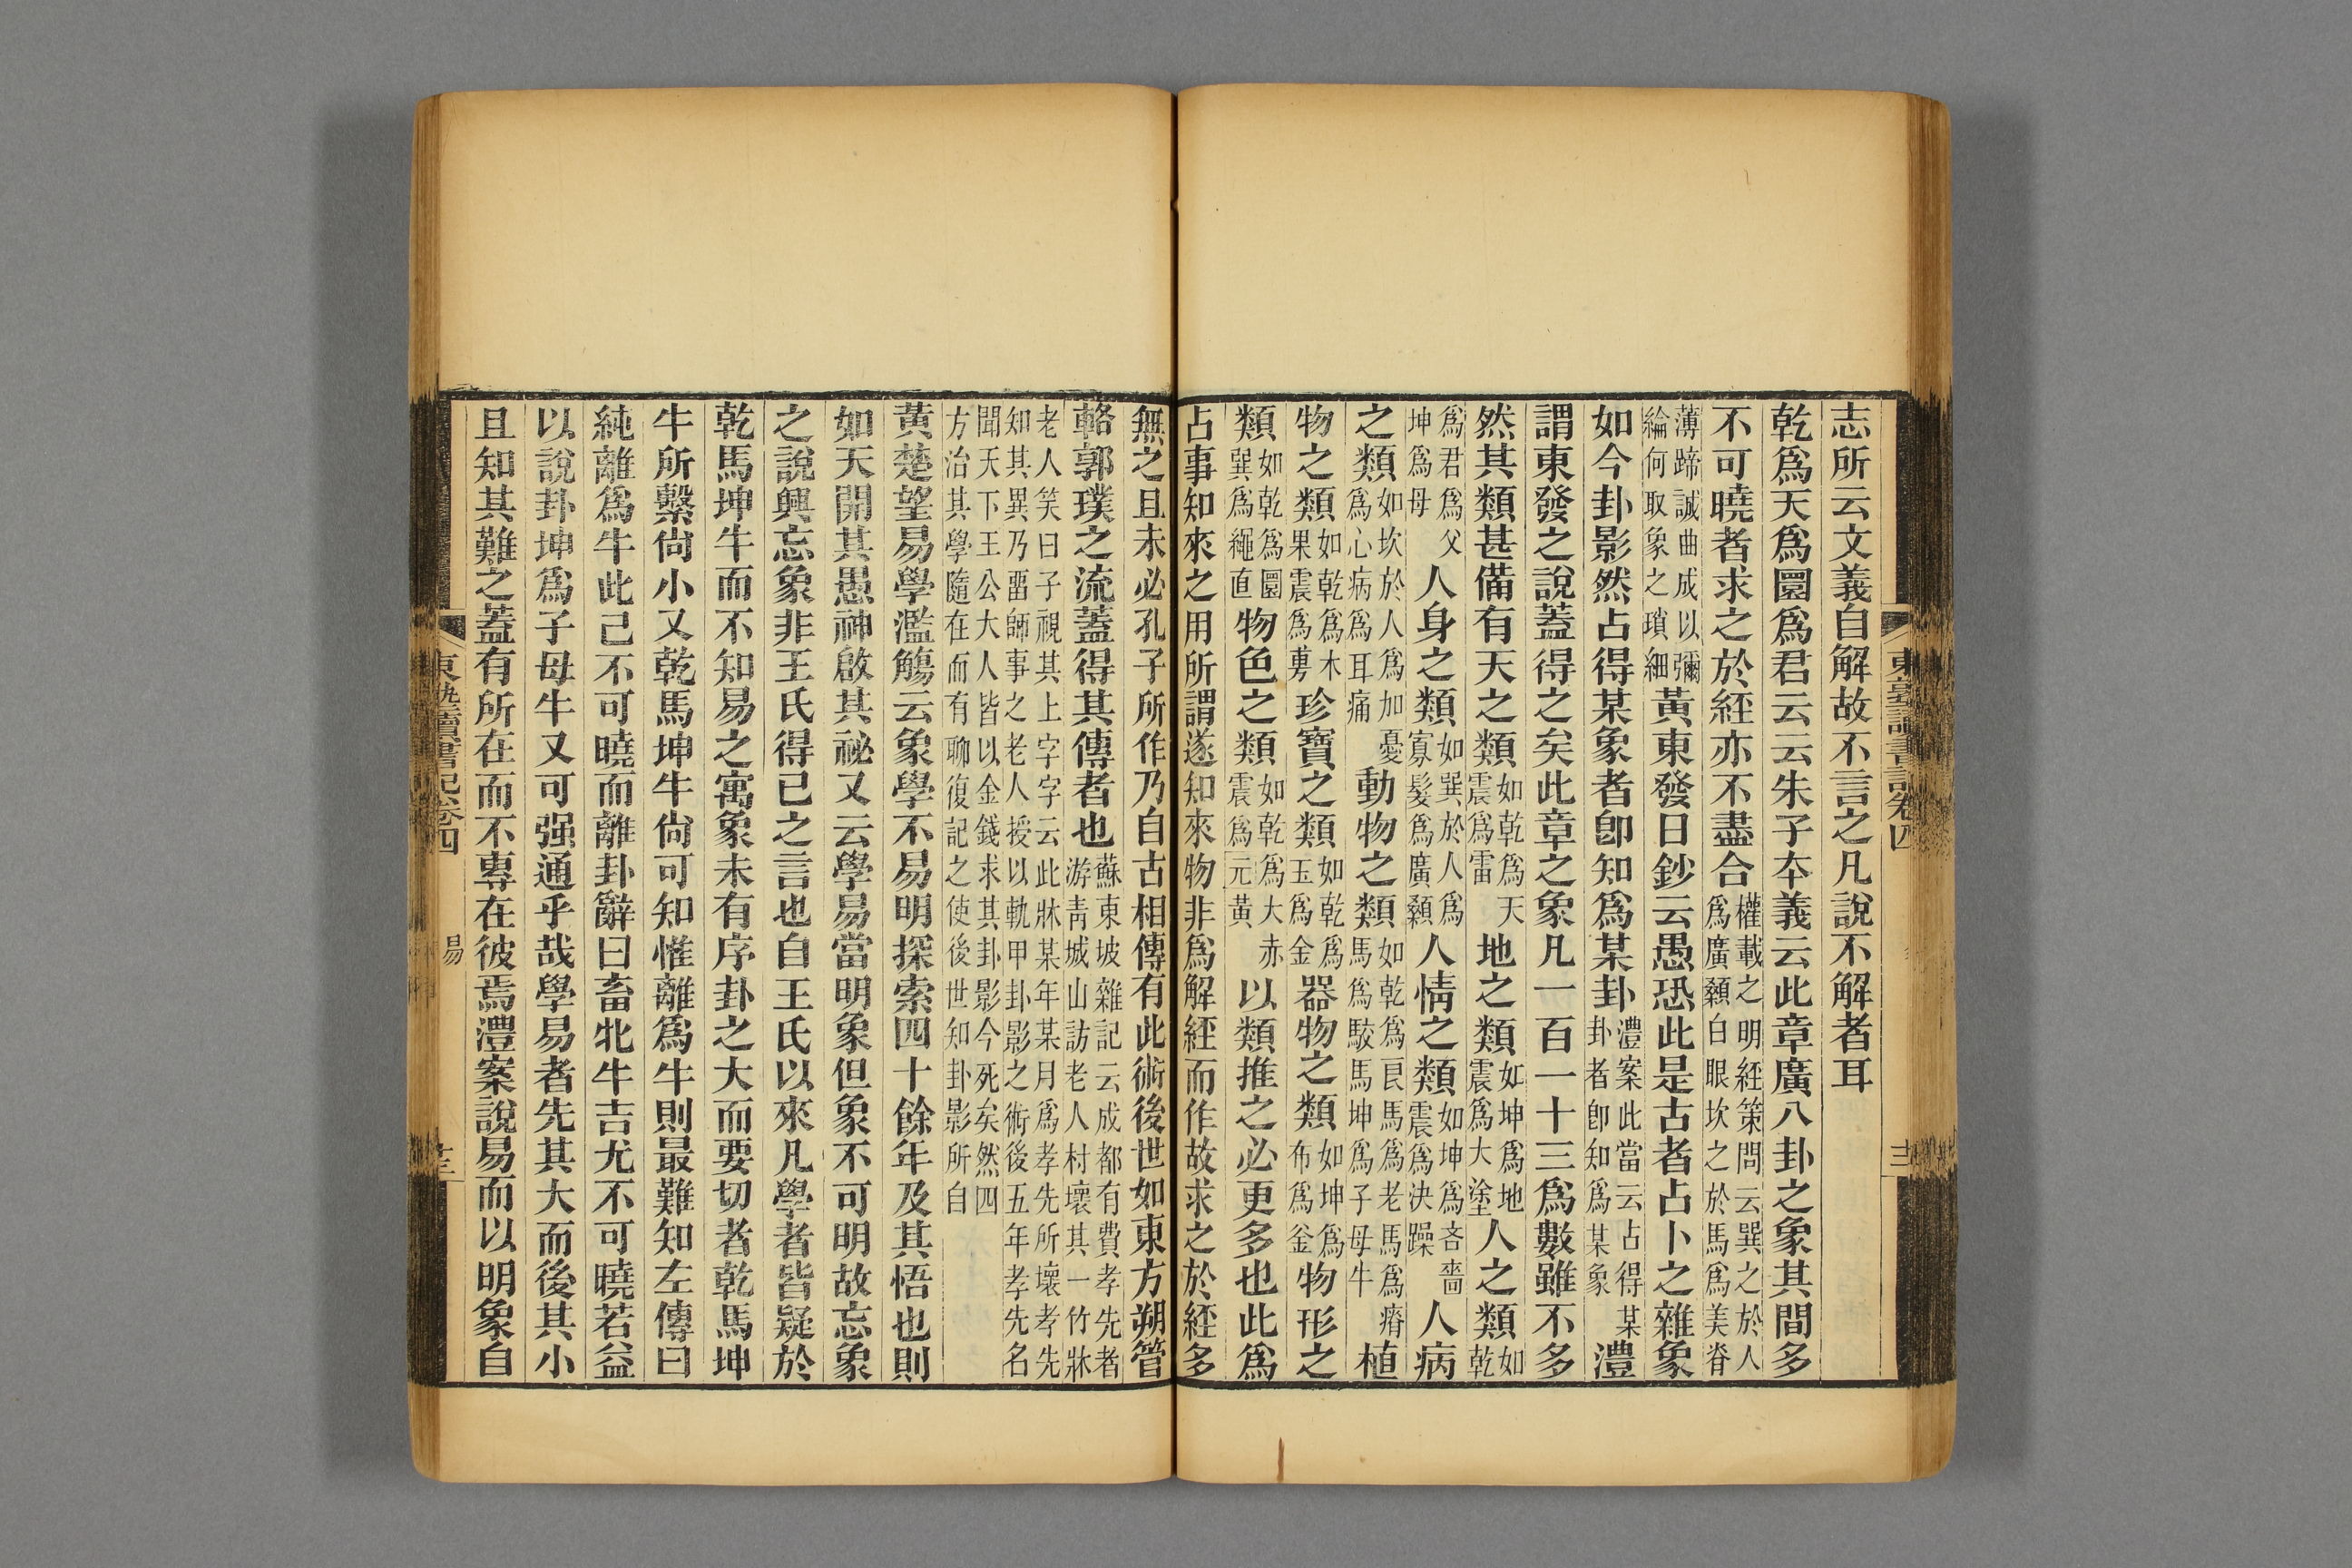 志所云文義自解故不言之凡說不解者耳
乾爲天爲圜爲君云云朱子本義云此章廣八卦之象其間多
不可曉者求之於經亦不盡合權載之明經策問云巽之於人爲廣顙白眼坎之於馬爲美脊
薄蹄誠曲成以彌綸何取象之瑣細黃東發日鈔云愚恐此是古者占卜之雜象
如今卦影然占得某象者卽知爲某卦澧案此當云占得某卦者卽知爲某象澧
謂東發之說蓋得之矣此章之象凡一百一十三爲數雖不多
然其類甚備有天之類如乾爲天震爲雷地之類如坤爲地震爲大塗人之類如乾
爲君爲父坤爲母人身之類如巽於人爲寡髮爲廣顙人情之類如坤爲吝嗇震爲決躁人病
之類如坎於人爲加憂爲心病爲耳痛動物之類如乾爲良馬爲老馬爲瘠馬爲駁馬坤爲子母牛植
物之類如乾爲木果震爲旉珍寶之類如乾爲玉爲金器物之類如坤爲布爲釜物形之
類如乾爲圜巽爲繩直物色之類如乾爲大赤震爲元黃以類推之必更多也此爲
占事知來之用所謂遂知來物非爲解經而作故求之於經多
東塾讀書記卷四
無之且未必孔子所作乃自古相傳有此術後世如東方朔管
輅郭璞之流蓋得其傳者也蘇東坡雜記云成都有費孝先者游青城山訪老人村壞其一竹牀
老人笑曰子視其上字字云此牀某年某月爲孝先所壞孝先知其異乃畱師事之老人授以軌甲卦影之術後五年孝先名
聞天下王公大人皆以金錢求其卦影今死矣然四方治其學隨在而有聊復記之使後世知卦影所自
黃楚望易學濫觴云象學不易明探索四十餘年及其悟也則
如天開其愚神啟其祕又云學易當明象但象不可明故忘象
之說興忘象非王氏得已之言也自王氏以來凡學者皆疑於
乾馬坤牛而不知易之寓象未有序卦之大而要切者乾馬坤
牛所繫尙小又乾馬坤牛尙可知惟離爲牛則最難知左傳曰
純離爲牛此已不可曉而離卦辭曰畜牝牛吉尤不可曉若益
以說卦坤爲子母牛又可强通乎哉學易者先其大而後其小
且知其難之蓋有所在而不專在彼焉澧案說易而以明象自
東塾讀書記卷四
易